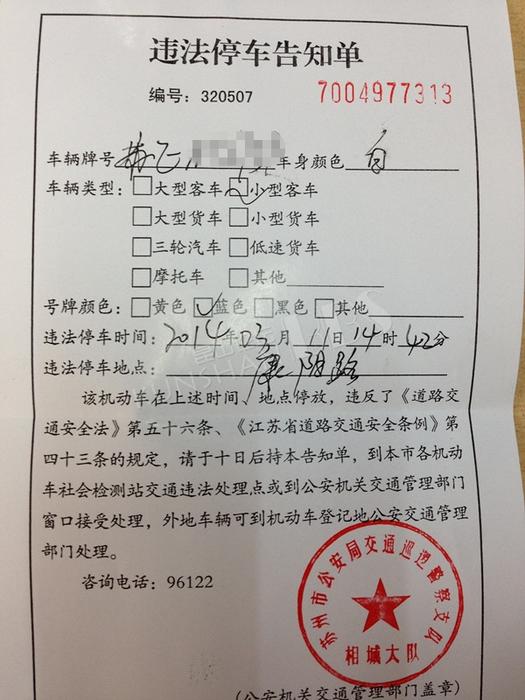 违法停车告知单
编号：320507 7004977313
车辆牌号 车身颜色 白
车辆类型：□大型客车 ☑小型客车
□大型货车 □小型货车
□三轮汽车 □低速货车
□摩托车 □其他
号牌颜色：□黄色 ☑蓝色 □黑色 □其他
违法停车时间：2014年03月11日14时42分
违法停车地点：康阳路
该机动车在上述时间、地点停放，违反了《道路交
通安全法》第五十六条、《江苏省道路交通安全条例》第
四十三条的规定，请于十日后持本告知单，到本市各机动
车社会检测站交通违法处理点或到公安机关交通管理部门
窗口接受处理，外地车辆可到机动车登记地公安交通管理
部门处理。
咨询电话：96122
苏州市公安局交通巡逻警察支队
相城大队
(公安机关交通管理部门盖章)